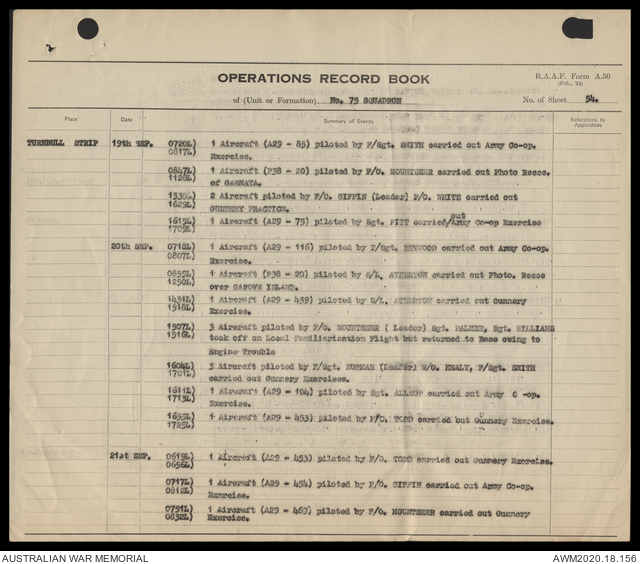 2
OPERATIONS RECORD BOOK
R.A.A.F. Form A.50
(Feb., '38)
of (Unit or Formation) No. 75 SQUADRON
No. of Sheet 54.
Place Date Summary of Events References to Appendices
TURNBULL STRIP 19th SEP. 0720L) 1 Aircraft (A29 - 85) piloted by F/Sgt. SMITH carried out Army Co-op.
0817L) Exercise.
0847L) 1 Aircraft (P38 - 20) piloted by F/O. MOUNTSEER carried out Photo Recce.
1128L) of GASMATA.
1539L) 2 Aircraft piloted by F/O. GIFFIN (Leader) P/O. WHITE carried out
1625L) GUNNERY PRACTICE.
1615L) 1 Aircraft (A29 - 75) piloted by Sgt. PITT carried/Army Co-op Exercise
out
1705L)
20th SEP. 0718L) 1 Aircraft (A29 - 116) piloted by F/Sgt. HEYWOOD carried out Army Co-op.
0807L) Exercise.
0855L) 1 Aircraft (P38 - 20) piloted by S/L. ATHERTON carried out Photo. Recce
1250L) over GAROVE ISLAND.
1431L) 1 Aircraft (A29 - 459) piloted by S/L. ATHERTON carried out Gunnery
1518L) Exercise.
1507L) 3 Aircraft piloted by F/O. MOUNTSEER ( Leader) Sgt. PALMER, Sgt. WILLIAMS
1516L) took off on Local Familiarization Flight but returned to Base owing to
Engine Trouble
1604L) 3 Aircraft piloted by F/Sgt. NORMAN (Leader) W/O. HEALY, F/Sgt. SMITH
1701L) carried out Gunnery Exercises.
1611L) 1 Aircraft (A29 - 104) piloted by Sgt. carried out Army C -op.
1713L) Exercise.
1655L) 1 Aircraft (A29 - 453) piloted by F/O. TODD carried out Gunnery Exercise.
1725L)
21st SEP. 0615L) 1 Aircraft (A29 - 453) piloted by F/O. TODD carried out Gunnery Exercise.
0656L)
0717L) 1 Aircraft (A29 - 454) piloted by F/O. GIFFIN carried out Army Co-op.
0812L) Exercise.
0751L) 1 Aircraft (A29 - 469) piloted by F/O. MOUNTSEER carried out Gunnery
0832L) Exercise.
AUSTRALIAN WAR MEMORIAL
AWM2020.18.156